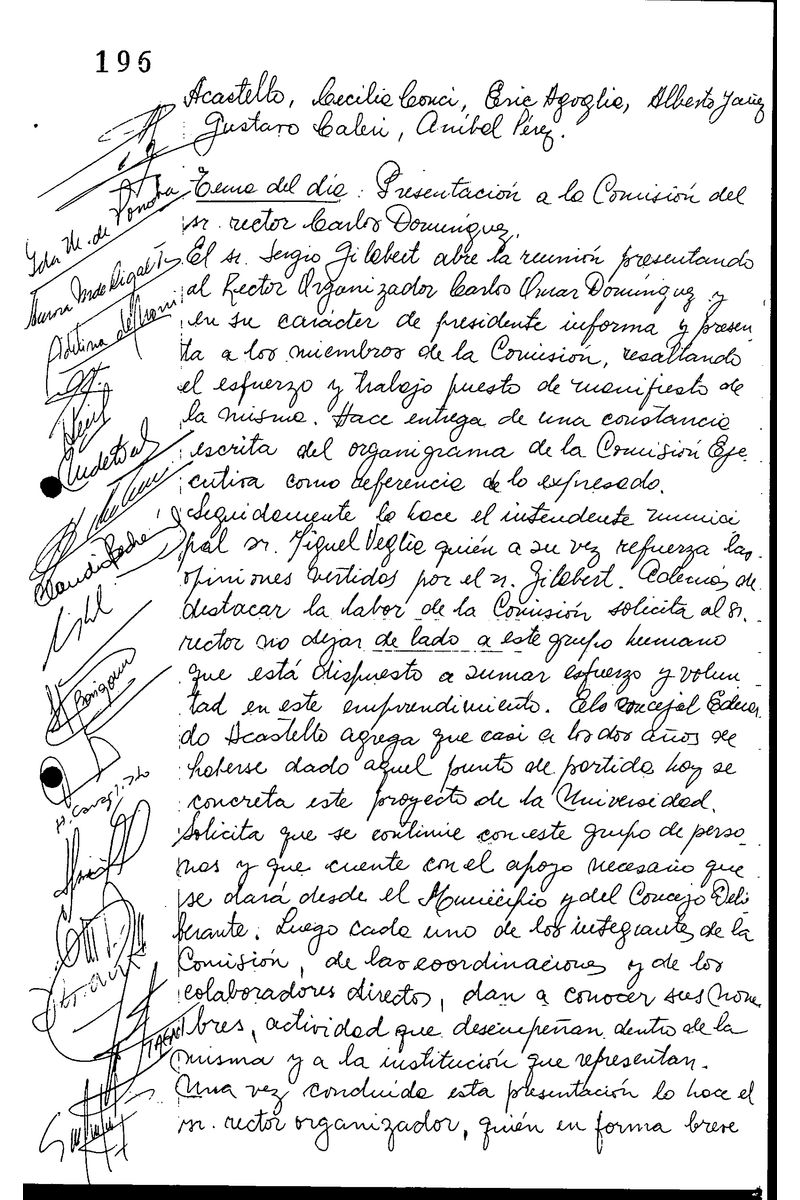 196
Acastello, Cecilia Conci, Eric Agoglia, Alberto Yañez
Gustavo Caleri, Anibal Pérez.
Tema del día: Presentación a la Comisión del
sr. rector Carlos Domínguez.
El sr. Sergio Gilabert abre la reunión presentando
al Rector Organizador Carlos Omar Domínguez y
en su carácter de presidente informa y presen
ta a los miembros de la Comisión, resaltando
el esfuerzo y trabajo puesto de manifiesto de
la misma. Hace entrega de una constancia
escrita del organigrama de la Comisión Eje
cutiva como referencia de lo expresado.
Seguidamente lo hace el intendente munici
pal sr. Miguel Veglia quién a su vez refuerza las
opiniones vertidas por el sr. Gilabert. Además de
destacar la labor de la Comisión solicita al sr.
rector no dejar de lado a este grupo humano
que está dispuesto a sumar esfuerzo y volun
tad en este emprendimiento. El concejal Eduar
do Acastello agrega que casi a los dos años de
haberse dado aquel punto de partida hoy se
concreta este proyecto de la Universidad.
Solicita que se continúe con este grupo de perso
nas y que cuente con el apoyo necesario que
se dará desde el Municipio y del Concejo Deli
berante. Luego cada uno de los integrantes de la
Comisión, de las coordinaciones y de los
colaboradores directos, dan a conocer sus nom
bres, actividad que desempeñan dentro de la
misma y a la institución que representan.
Una vez concluída esta presentación lo hace el
sr. rector organizador, quién en forma breve